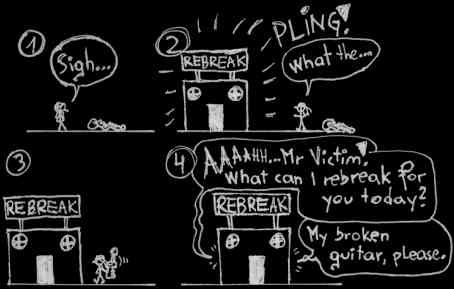 1
Sigh...
2
REBREAK
PLING!
What the...
3
REBREAK
4
AAAAHH...Mr Victim!
What can I rebreak for
you today?
REBREAK
My broken
guitar, please.